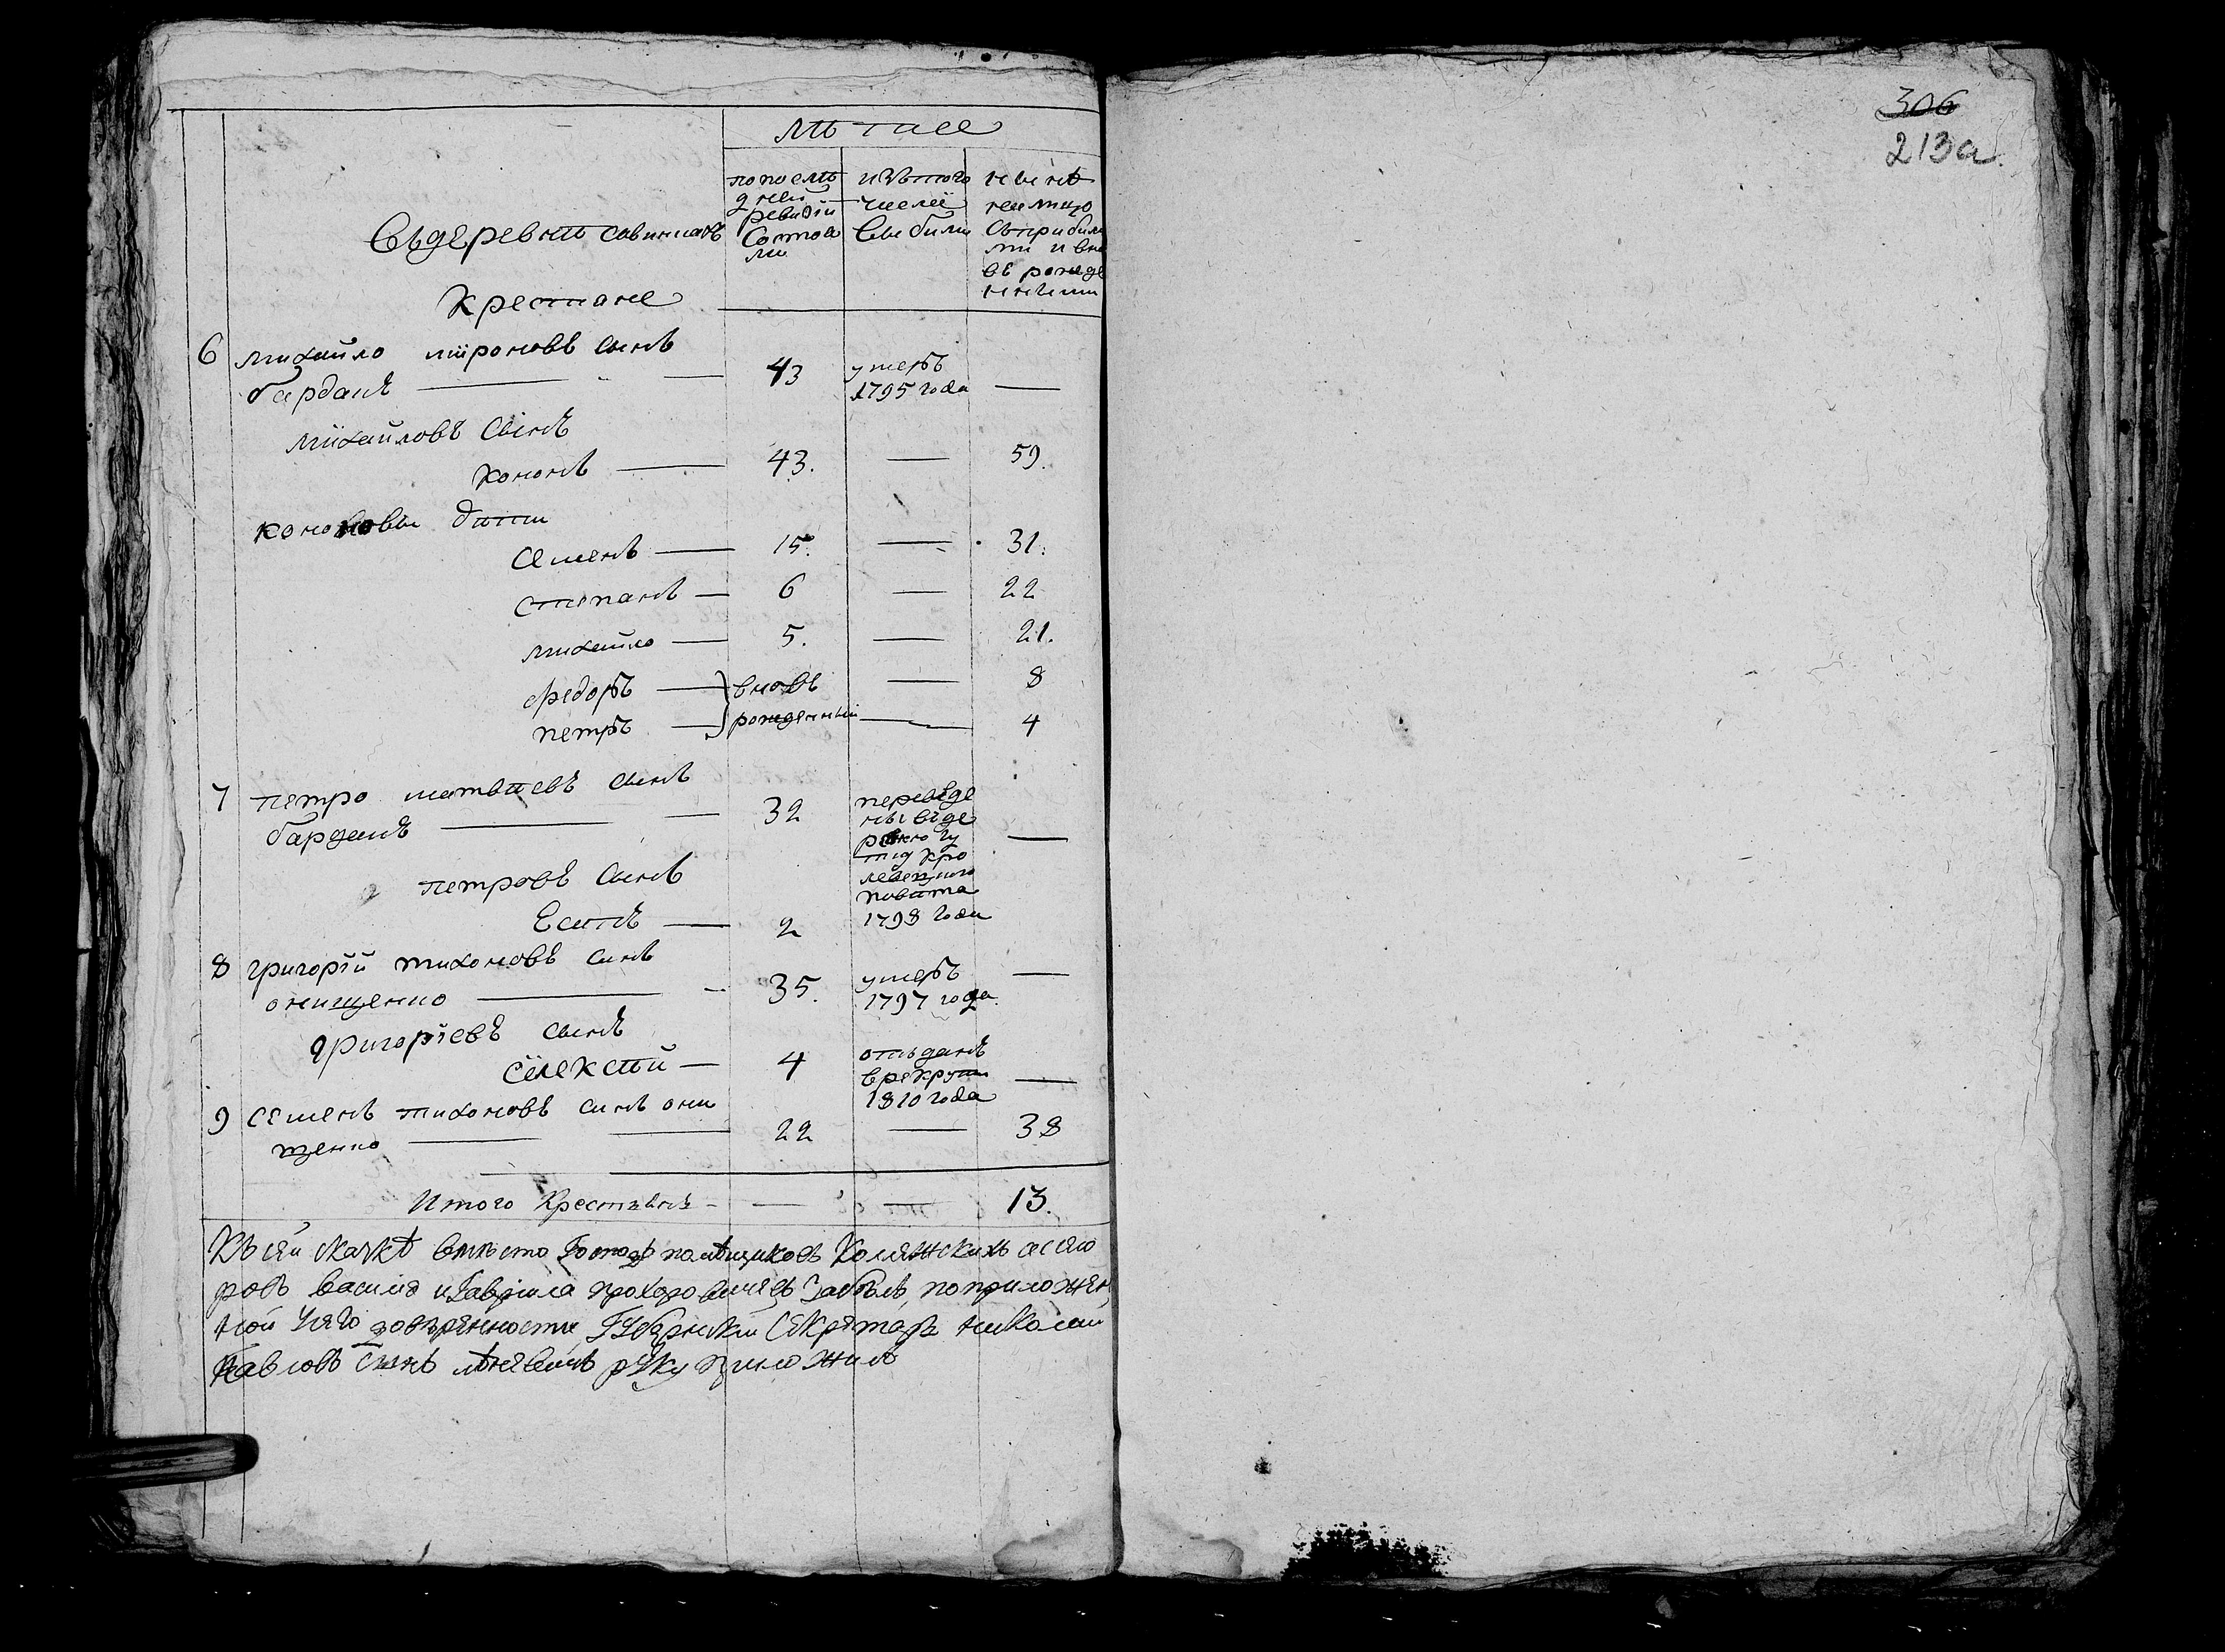 лѣтаее
въ деревнѣ савинкахъ
по послѣ
дней
ревизіи
Состоя
ли
изъ того
числа
выбыли
ныне
на лицо
съ прибыли
ми и вно
въ рожде
нними
Крестяне
6 михайло мироновъ сынъ
барданъ — — 43 умеръ
1795 года —
михайловъ сынъ
кононъ — 43. — 59.
кононовы дити
Семенъ — 15. — 31.
степанъ — 6 — 22
михайло — 5. — 21.
федоръ — вновъ — 8
петръ — рожденный — 4
7 петро матвѣевъ сынъ
барданъ — — 32 переведе
ны въ де
ревню
Кро
левецкого
повита
1798 года —
петровъ сынъ
Есипъ — 2
8 григорій тихоновъ синъ
онищенко — 35. умеръ
1797 года. —
григоріевъ сынъ
елексѣй — 4 отъданъ
в рекруты
1810 года —
9 семенъ тихоновъ синъ они
щенко — — 22 — 38
Итого Крестьянъ — — — 13.
Къ сей скаскѣ вмѣсто Господъ помѣщиковъ Колежскихъ асесо
ровъ василія и Гавріила прохоровичевъ Забѣлъ, по приложен
ной у него довѣренности, Губернскій Секретаръ николай
павловъ сынъ руку приложилъ
306
213а.